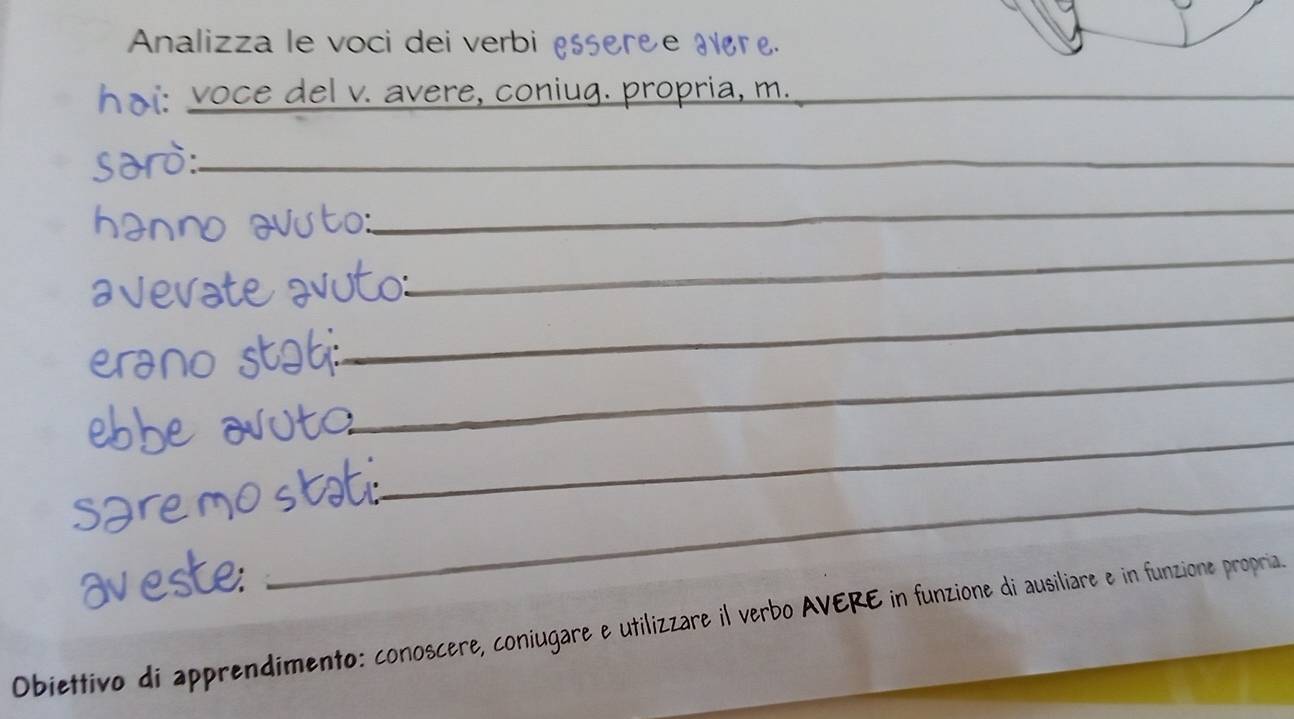 Analizza le voci dei verbi essere e avere.
hai: voce del v. avere, coniug. propria, m.
sarò:
hanno avuto:
avevate avuto:
erano stati:
ebbe avuto:
saremo stati:
aveste:
Obiettivo di apprendimento: conoscere, coniugare e utilizzare il verbo AVERE in funzione di ausiliare e in funzione propria.